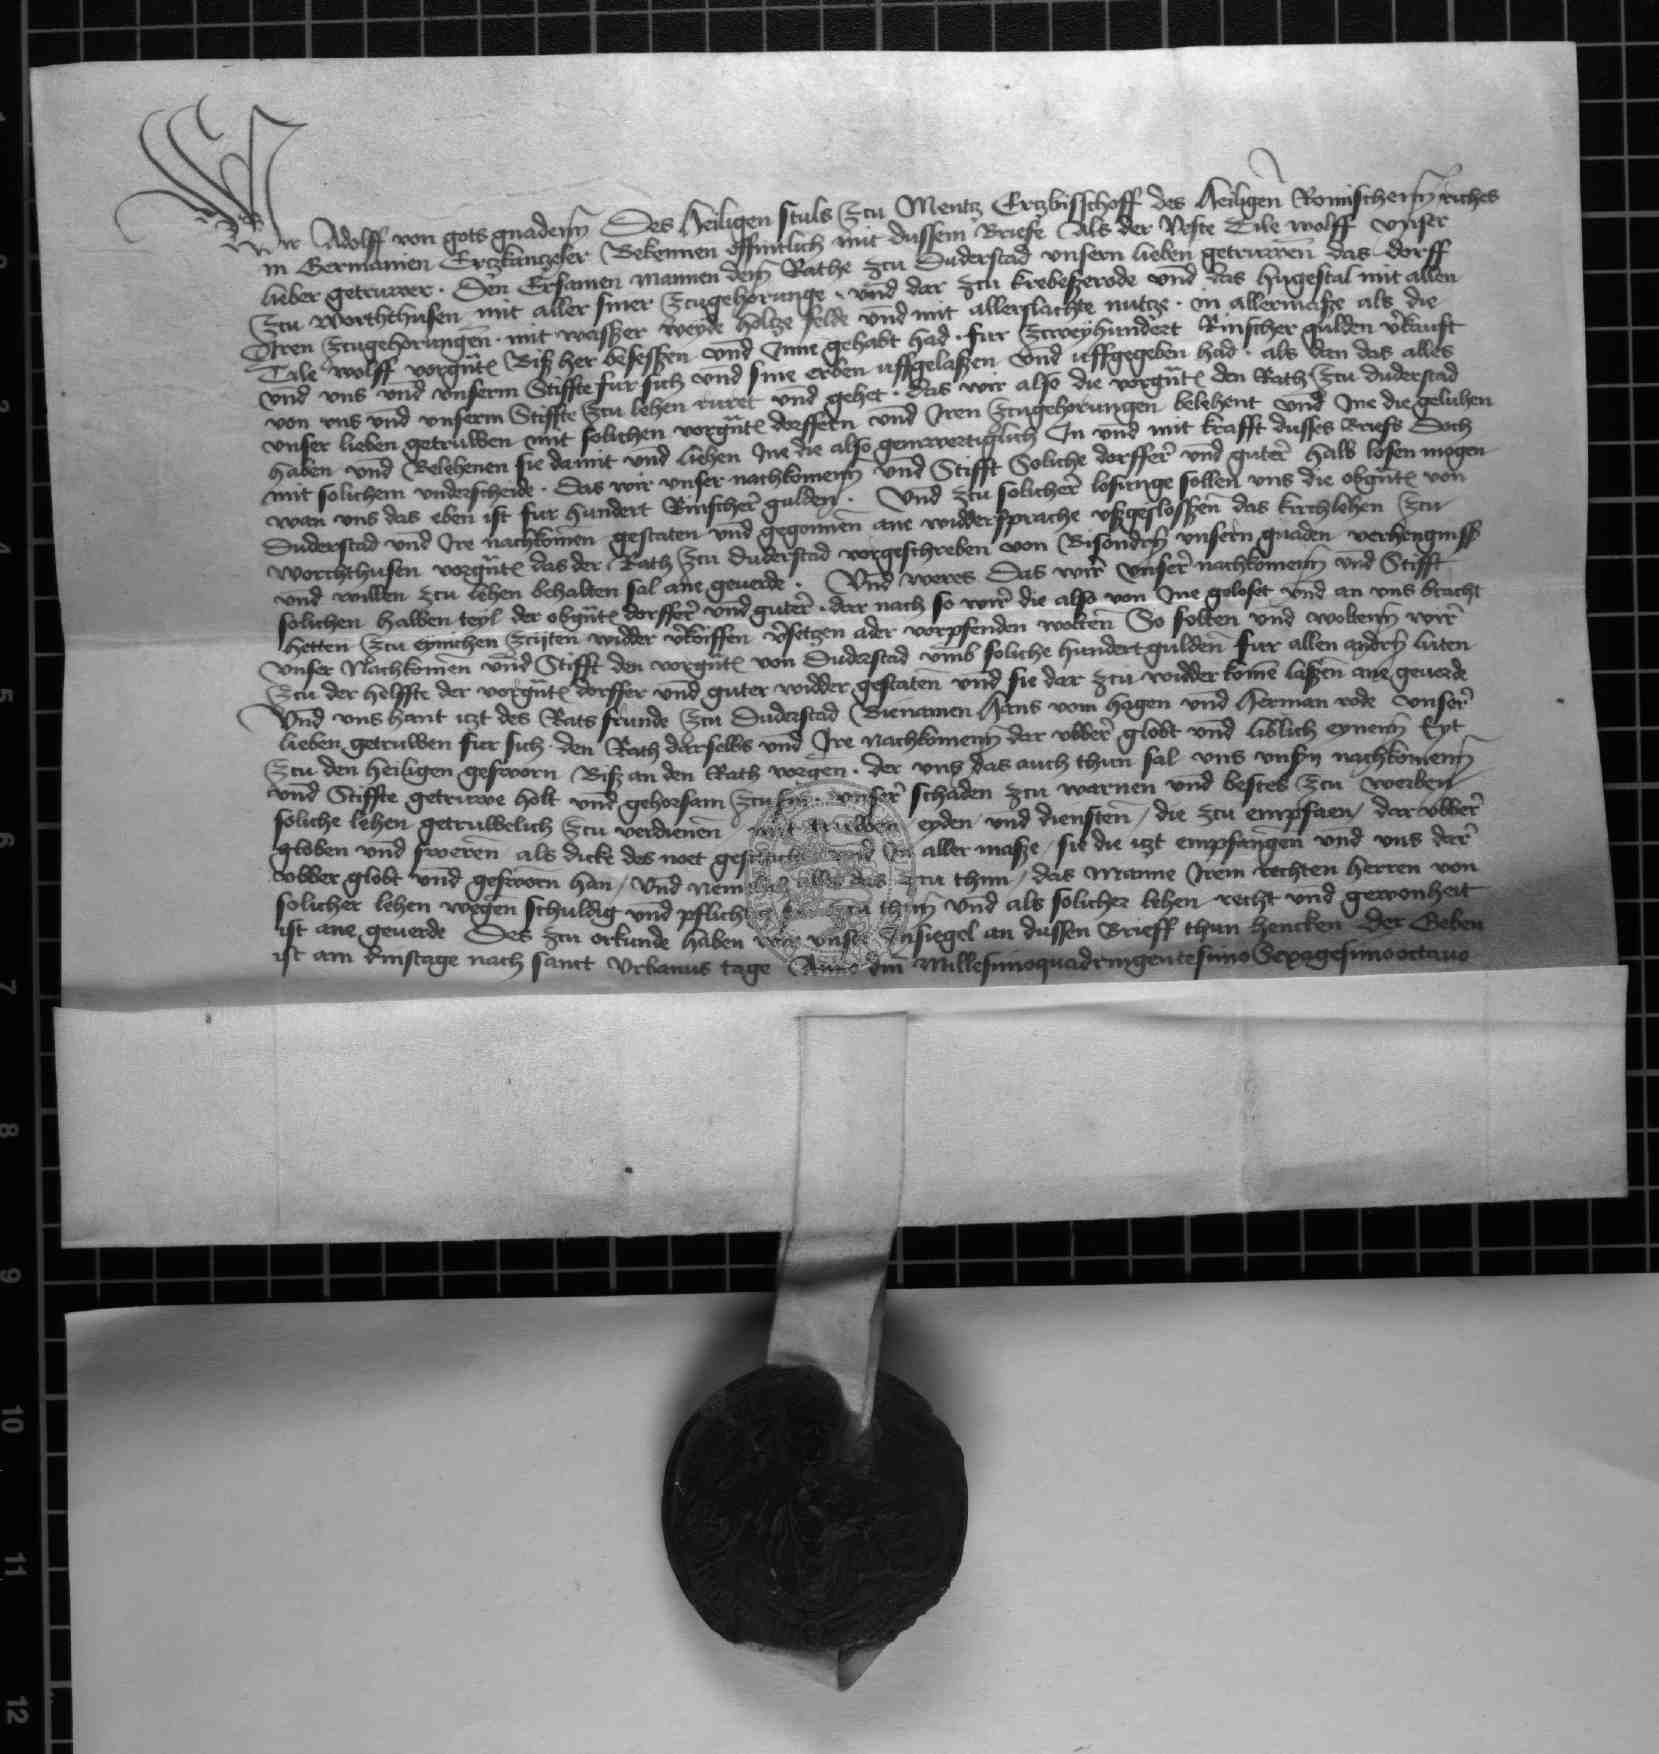 Wir Adolff von gots gnadenn Des heiligen stuls Zcu Mentz Ertzbisschoff des heiligen Romischenn riches
in Germanien Ertzkanczeler Bekennen offintlich mit dussem Briefe Als der Veste Tile wolff unser
lieber getruwer . Den Ersamen mannen dem Rathe zcu Duderstad unsern lieben getruwen das dorff
Zcu worchthusen mit aller siner Zcugehorunge . und dar zcu krebeszerode und das hugestal mit allen
Iren Zcugehorungen . mit waszer weyde holtze felde und mit allerslachte nutze . in allermasze als die
Tile wolff vorgnt Bisz her beseszen und Inne gehabt had . fur Zcweyhundert Rinscher gulden vkauft
und uns und unserm Stiffte fur sich und sine erben uffgelaszen und uffgegeben had . als dan das alles
von uns und unserm Stiffte Zcu lehen ruret und gehet . das wir also die vorgnt den Rath Zcu duderstad
unser lieben getruwen mit solichen vorgnt dorffern und Iren Zcugehorungen belehent und Ine die geluhen
haben und Belehenen sie damit und liehen Ine die also geinwertiglich In und mit krafft dusses briefs Doch
mit solichem underscheide . Das wir unser nachkomenn und Stifft Soliche dorffer und guter halb losen mogen
wan uns das eben ist fur hundert Rinscher gulden . Und zcu solicher losunge sollen uns die obgnt von
Duderstad und Ire nachkomen gestaten und gegonnen ane widdersprache uszgeslossen das kirchlehen Zcu
worchthusen vorgnt das der Rath Zcu duderstad vorgeschreben von Bisondern unsern gnaden verhengniss
und willen zcu lehen behalten sal ane geuerde . Und weres Das wir unser nachkomenn und Stifft
solichen halben teyl der obgnt dorffer und guter . dar nach so wir die also von Ine geloset und an uns bracht
hetten Zcu eynichen Zcijten widder vkoiffen vsetzen ader vorpfenden wolten So solten und woltenn wir
unser Nachkomen und Stifft den vorgnt von Duderstad umb soliche hundert gulden fur allen andern luten
Zcu der helffte der vorgnt dorffer und guter widder gestaten und sie dar zcu widder komen laszen ane geuerde
Und uns hant itzt des Rats frunde Zcu Duderstad Bienamen hans vom hagen und herman rode unser
lieben getruwen fur sich . den Rath darselbs und Ire nachkomenn dar ubber globt und liblich eynenn Eyt
Zcu den heiligen gesworn Bisz an den Rath wegen . der uns das auch thun sal uns unsern nachkomenn
und Stiffte getruwe holt und gehorsam Zcu sin . unser schaden zcu warnen und bestes Zcu werben
soliche lehen getruwelich Zcu verdienen mit truwen eyden und diensten / die zcu empfaen / dar ubber
globen und sweren als dicke des noet geschicht und In aller masze / sie die itzt empfangen und uns dar
ubber globt und gesworn han / Und alles das Zcu thun / das Manne Irem rechten herren von
solicher lehen wegen schuldig und pflichtig sin Zcu thun und als solicher lehen recht und gewonheit
ist ane geuerde Des zcu orkunde haben wir unser Insiegel an dussen Brieff thun hencken Der Geben
ist am dinstage nach sanct Urbanus tage Anno dni Millesimoquadringentesimo Sexagesimooctavo
1
2
3
4
5
6
7
8
9
10
11
12